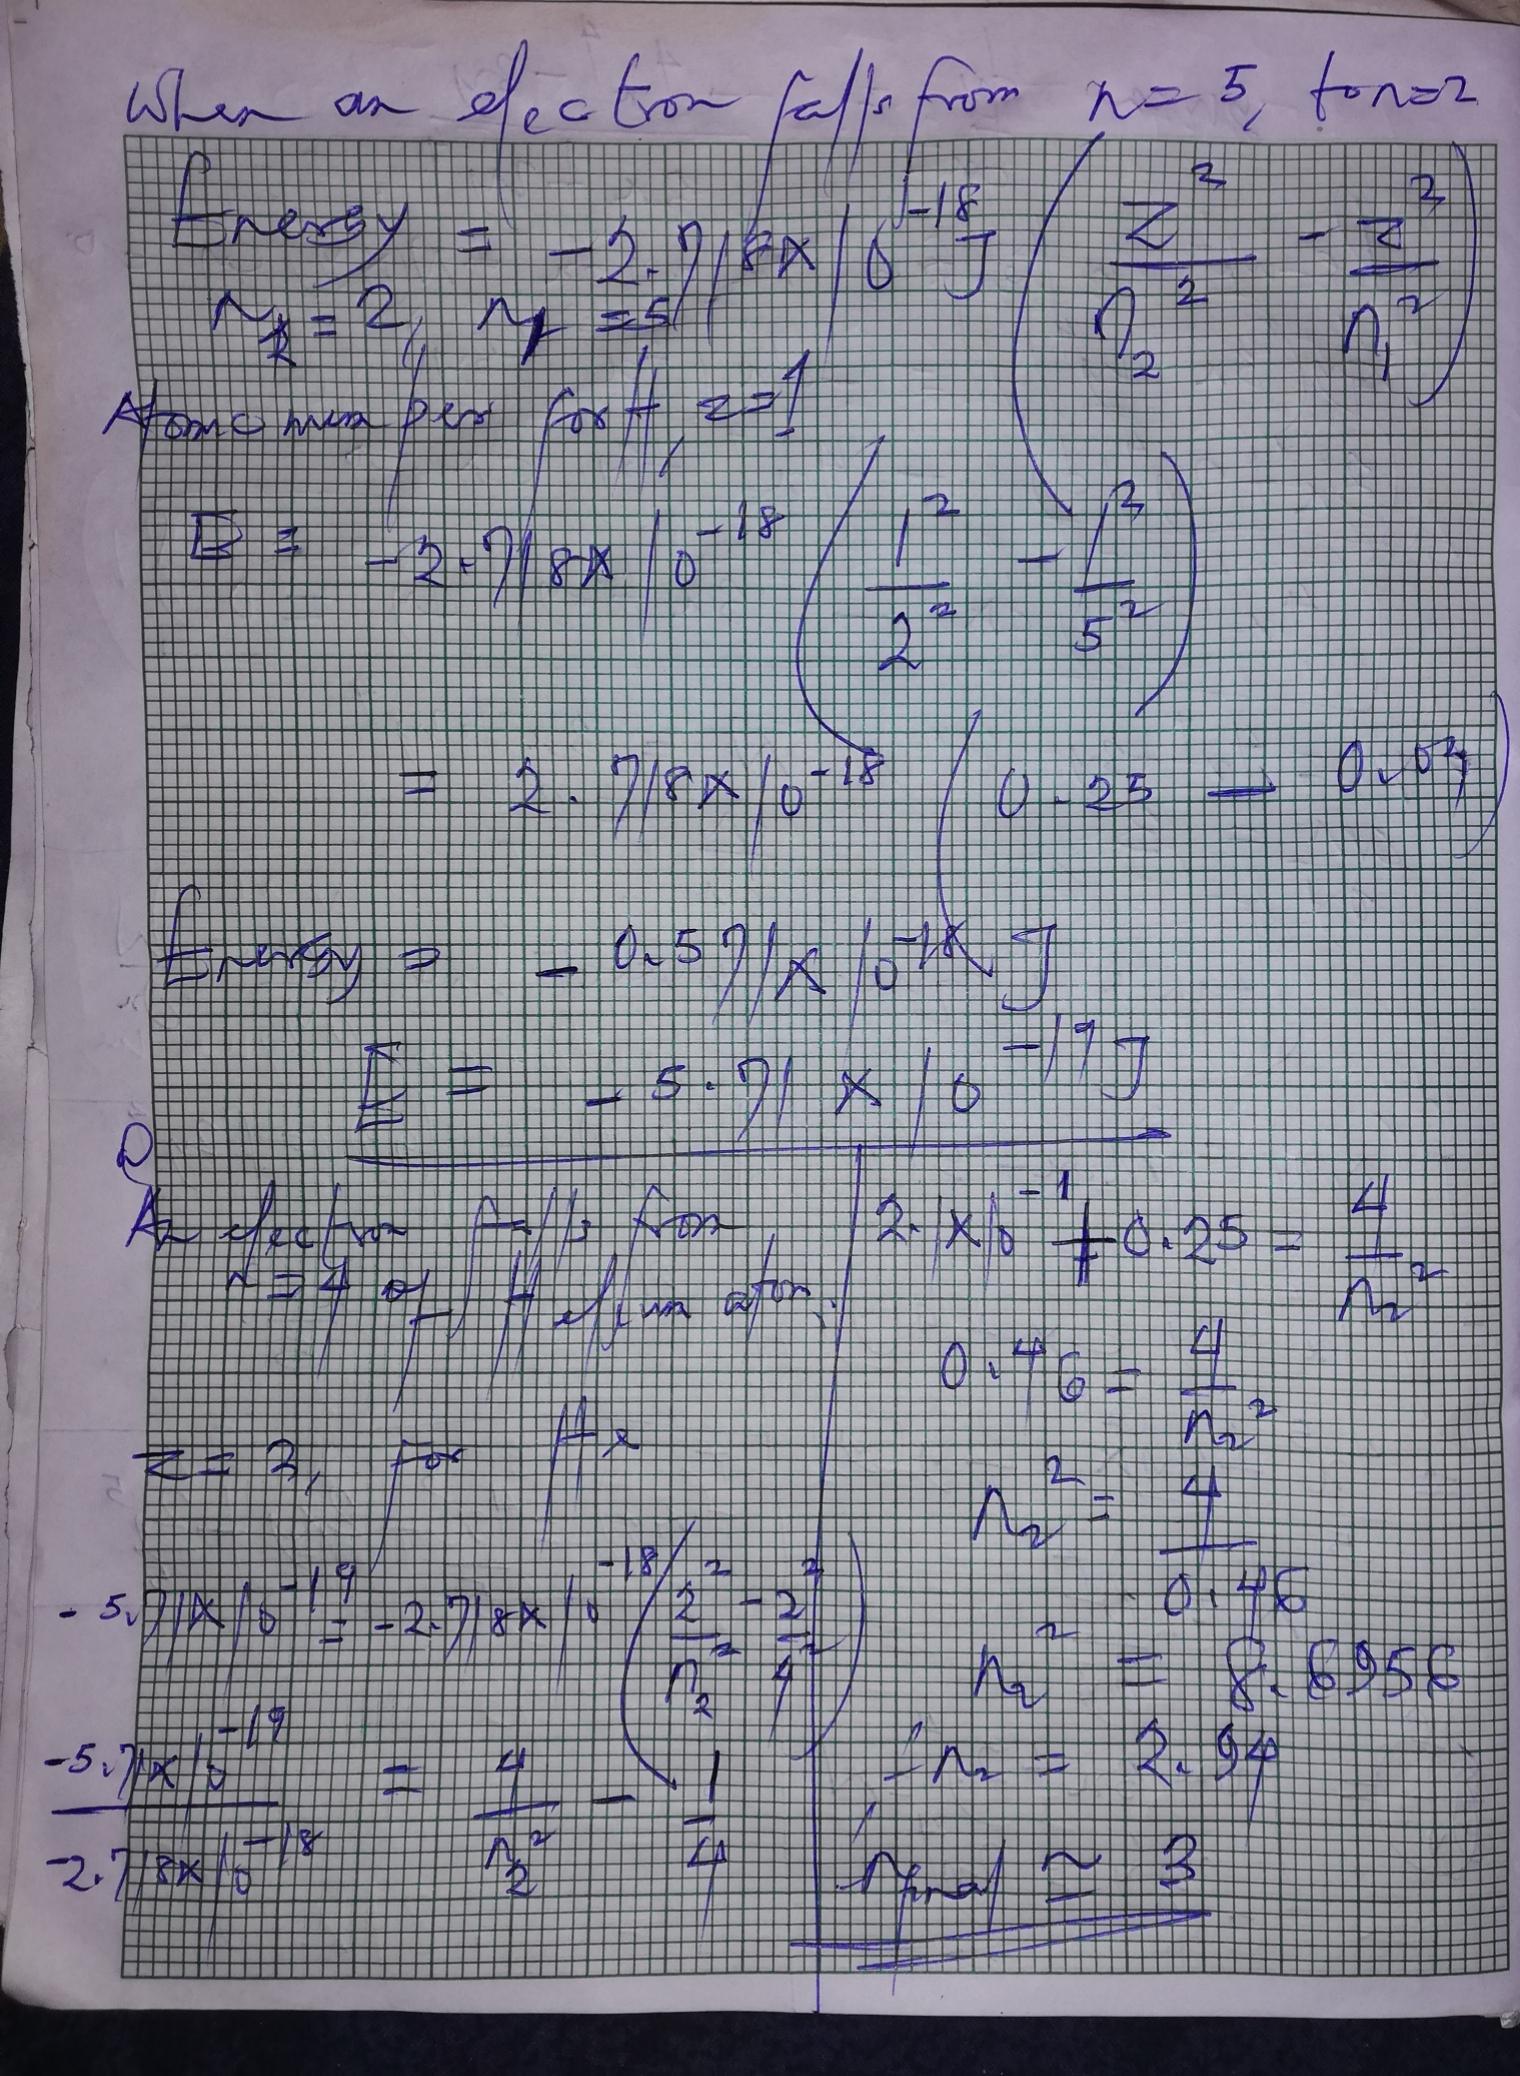 When an electron falls from n=5, to n=2
Energy = -2.718x10^-18 J (Z²/n₂² - Z²/n₁²)
n₂=2, n₁=5
Atomic number for H, z=1
E = -2.718x10^-18 (1²/2² - 1²/5²)
= 2.718x10^-18 (0.25 - 0.04)
Energy = -0.571x10^-18 J
E = -5.71x10^-19 J
Q
An electron falls from
n=4 of Helium atom.
Z=2, for He
-5.71x10^-19 = -2.718x10^-18 (2²/n₂² - 2²/4²)
-5.71x10^-19/-2.718x10^-18 = 4/n₂² - 1/4
2.1x10^-1 + 0.25 = 4/n₂²
0.46 = 4/n₂²
n₂² = 4/0.46
n₂² = 8.6956
n₂ = 2.94
n final ≃ 3